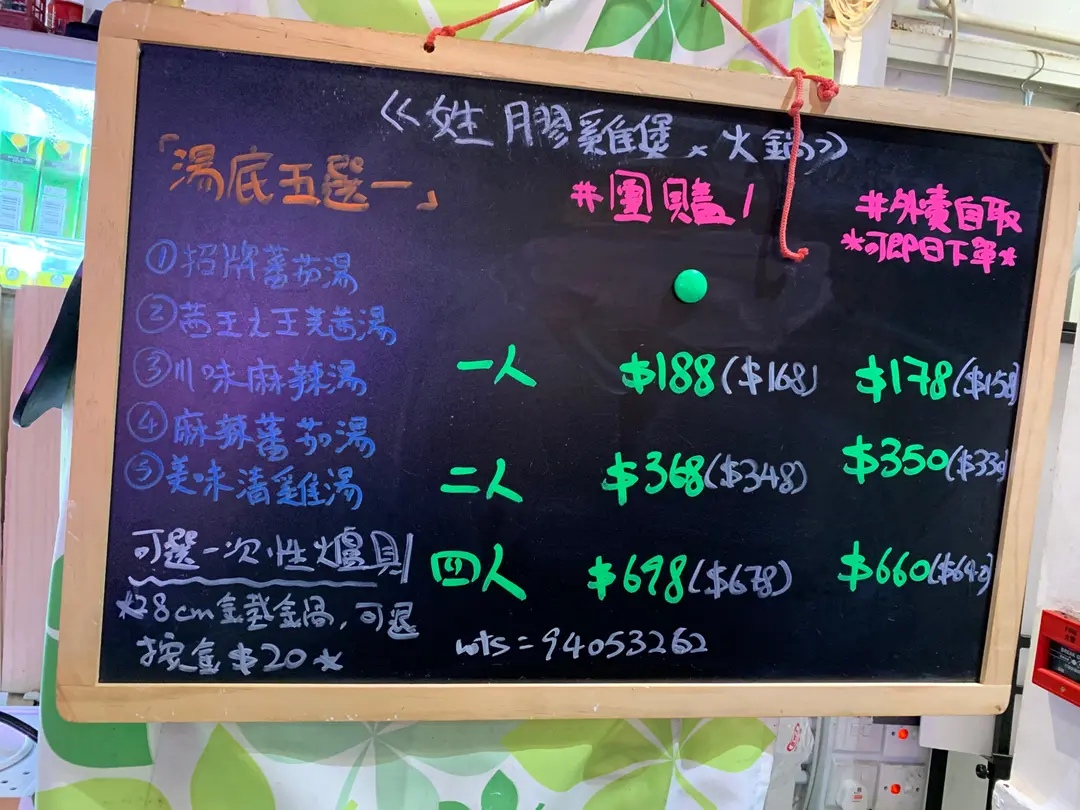 《姓膠雞煲 × 火鍋》
「湯底五選一」
#團購
#外賣自取
*可即日下單*
①招牌蕃茄湯
③川味麻辣湯
④麻辣蕃茄湯
⑤美味清雞湯
可選一次性爐具
*28cm 鍋,可退
按金$20*
一人 $188($168) $178($158)
二人 $368($348) $350($330)
四人 $698($678) $660
wts=94053262